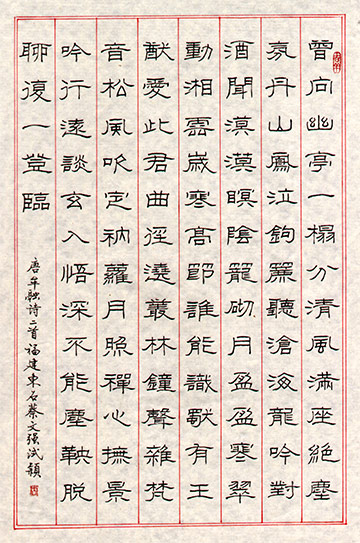 曾向幽亭一榻分清風滿座絕塵
氛丹山鳳泣鉤簾聽滄海龍吟對
酒聞漠漠暝陰籠砌月盈盈寒翠
動湘雲歲寒高節誰能識獨有王
猷愛此君曲徑遶叢林鐘聲雜梵
音松風吹定衲蘿月照禪心撫景
吟行遠談玄入悟深不能塵鞅脫
聊復一登臨
唐牟融詩二首福建東石蔡文强試穎